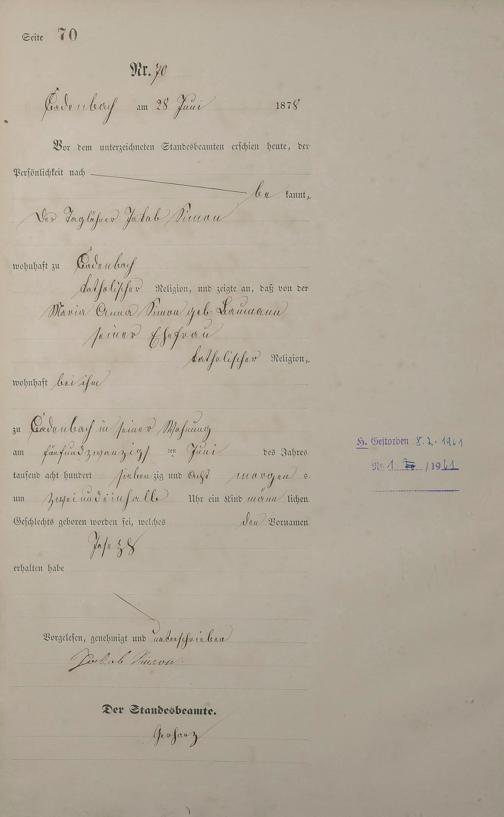 Seite 70
Nr. 70
Cadenbach am 28 Juni 1878
Vor dem unterzeichneten Standesbeamten erschien heute, der
Persönlichkeit nach
be kannt,
Der Taglöhner Jakob Simon
wohnhaft zu Cadenbach
katholischer Religion, und zeigte an, daß von der
Maria Anna Simon geb. Baumann
seiner Ehefrau
katholischer Religion,
wohnhaft bei ihm
zu Cadenbach in seiner Wohnung
am fünfundzwanzigsten Juni des Jahres
tausend acht hundert sieben zig und acht morgens
um zweiundeinhalb Uhr ein Kind männ lichen
Geschlechts geboren worden sei, welches den Vornamen
Josef
erhalten habe
Vorgelesen, genehmigt und unterschrieben
Jakob Simon
Der Standesbeamte.
H. Gestorben 8.2.1961
Nr. 1 /1961